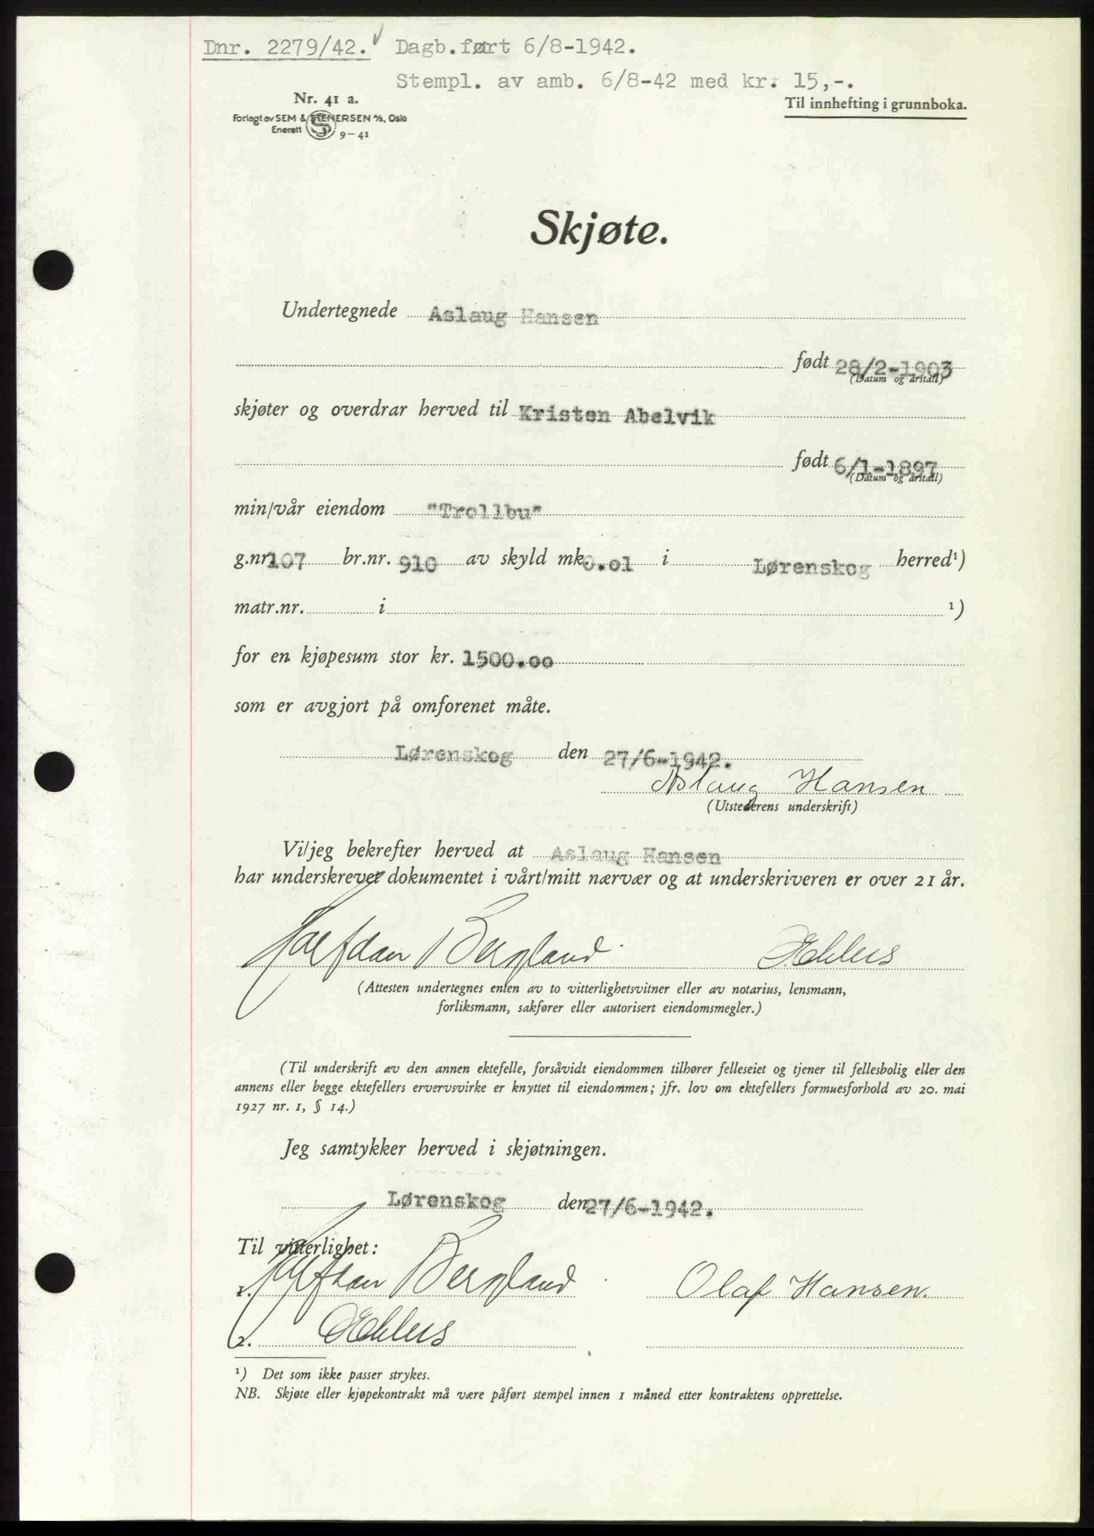 Dnr. 2279/42. Dagb.ført 6/8-1942.
Stempl. av amb. 6/8-42 med kr. 15,-.
Nr. 41 a.
Til innhefting i grunnboka.
Forlagt av SEM & STENERSEN A/S, Oslo
Enerett 9-41
Skjøte.
Undertegnede Aslaug Hansen
født 28/2-1903
(Datum og årstall)
skjøter og overdrar herved til Kristen Abelvik
født 6/1-1897
(Datum og årstall)
min/vår eiendom "Trollbu"
g.nr. 107 br.nr. 910 av skyld mk. 0.01 i Lørenskog herred¹)
matr.nr. i ¹)
for en kjøpesum stor kr. 1500.00
som er avgjort på omforenet måte.
Lørenskog den 27/6-1942.
Aslaug Hansen
(Utstederens underskrift)
Vi/jeg bekrefter herved at Aslaug Hansen
har underskrevet dokumentet i vårt/mitt nærvær og at underskriveren er over 21 år.
Halfdan Bergland
(Attesten undertegnes enten av to vitterlighetsvitner eller av notarius, lensmann,
forliksmann, sakfører eller autorisert eiendomsmegler.)
(Til underskrift av den annen ektefelle, forsåvidt eiendommen tilhører felleseiet og tjener til fellesbolig eller den
annens eller begge ektefellers ervervsvirke er knyttet til eiendommen; jfr. lov om ektefellers formuesforhold av 20. mai
1927 nr. 1, § 14.)
Jeg samtykker herved i skjøtningen.
Lørenskog den 27/6-1942.
Til vitterlighet:
1. Halfdan Bergland Olaf Hansen.
2.
¹) Det som ikke passer strykes.
NB. Skjøte eller kjøpekontrakt må være påført stempel innen 1 måned etter kontraktens opprettelse.